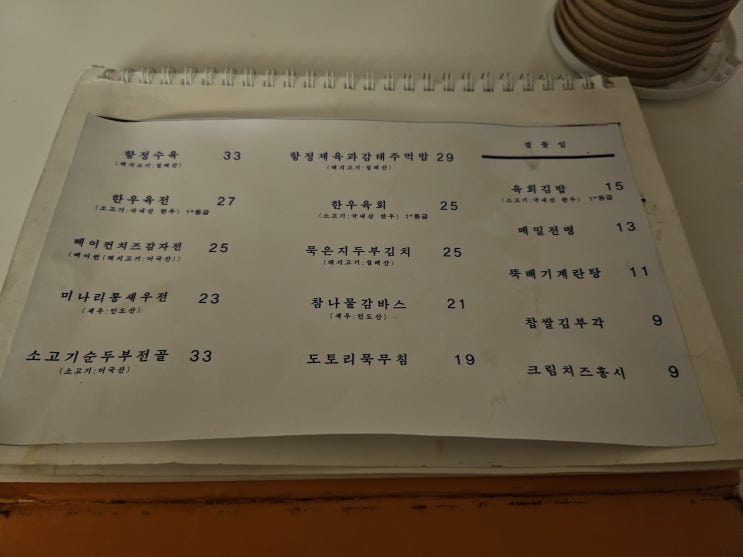 항정수육 33
(돼지고기:칠레산)
한우육전 27
(소고기:국내산 한우) 1+등급
베이컨치즈감자전 25
(베이컨(돼지고기:미국산))
미나리통새우전 23
(새우:인도산)
소고기순두부전골 33
(소고기:미국산)
항정제육과감태주먹밥 29
(돼지고기:칠레산)
한우육회 25
(소고기:국내산 한우) 1+등급
묵은지두부김치 25
(돼지고기:칠레산)
참나물감바스 21
(새우:인도산)
도토리묵무침 19
곁들임
육회김밥 15
(소고기:국내산 한우) 1+등급
메밀전병 13
뚝배기계란탕 11
찹쌀김부각 9
크림치즈홍시 9